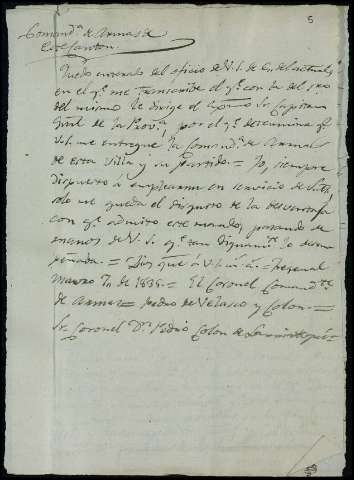 5
Comand.ª de Armas de
este Canton.
Quedo enterado del oficio de V.S. de 6, del actual,
en el q.e me transcribe el q.e con fha del
del mismo le dirige el Exmo Sr. Capitan
Gral de la Prov.ª, por el q.e determina q.e
V.S. me entregue la Comand.ª de Armas
de esta Villa y su partido. = Yo, siempre
dispuesto á emplearme en servicio de
solo me queda el disgusto de la desventaja
con q.e admito este mando, pasando de
manos de V.S. q.e tan dignam.te lo desem
peñada. = Dios gue á V.S. m.s a.s =
Marzo 7,, de 1838. = El Coronel Comand.te
de Armas = Pedro de Velasco y Colon. =
Sr. Coronel D.n Pedro Colon de